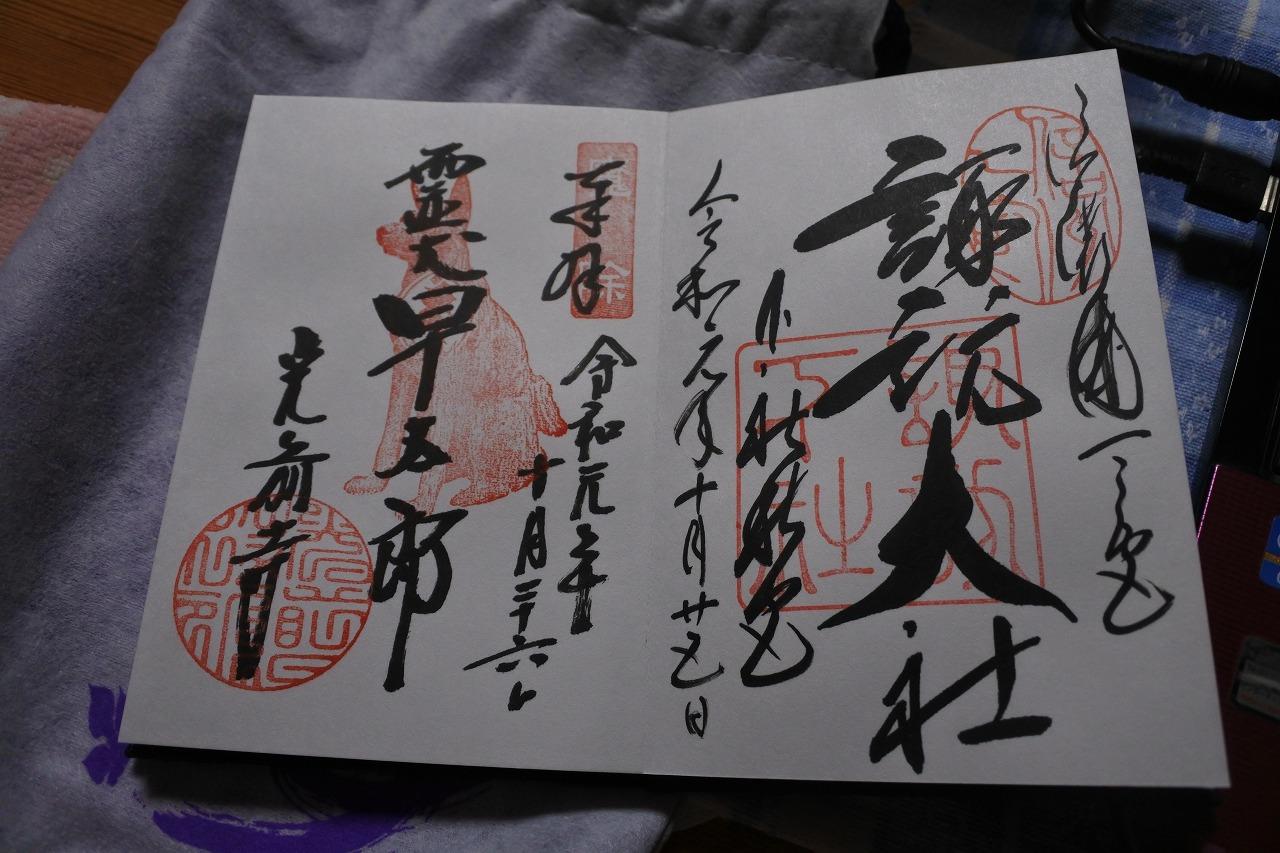 信濃國一之宮
諏訪大社
下社秋宮
令和元年十月廿五日
奉拝
令和元年
十月二十六日
霊犬早太郎
光前寺